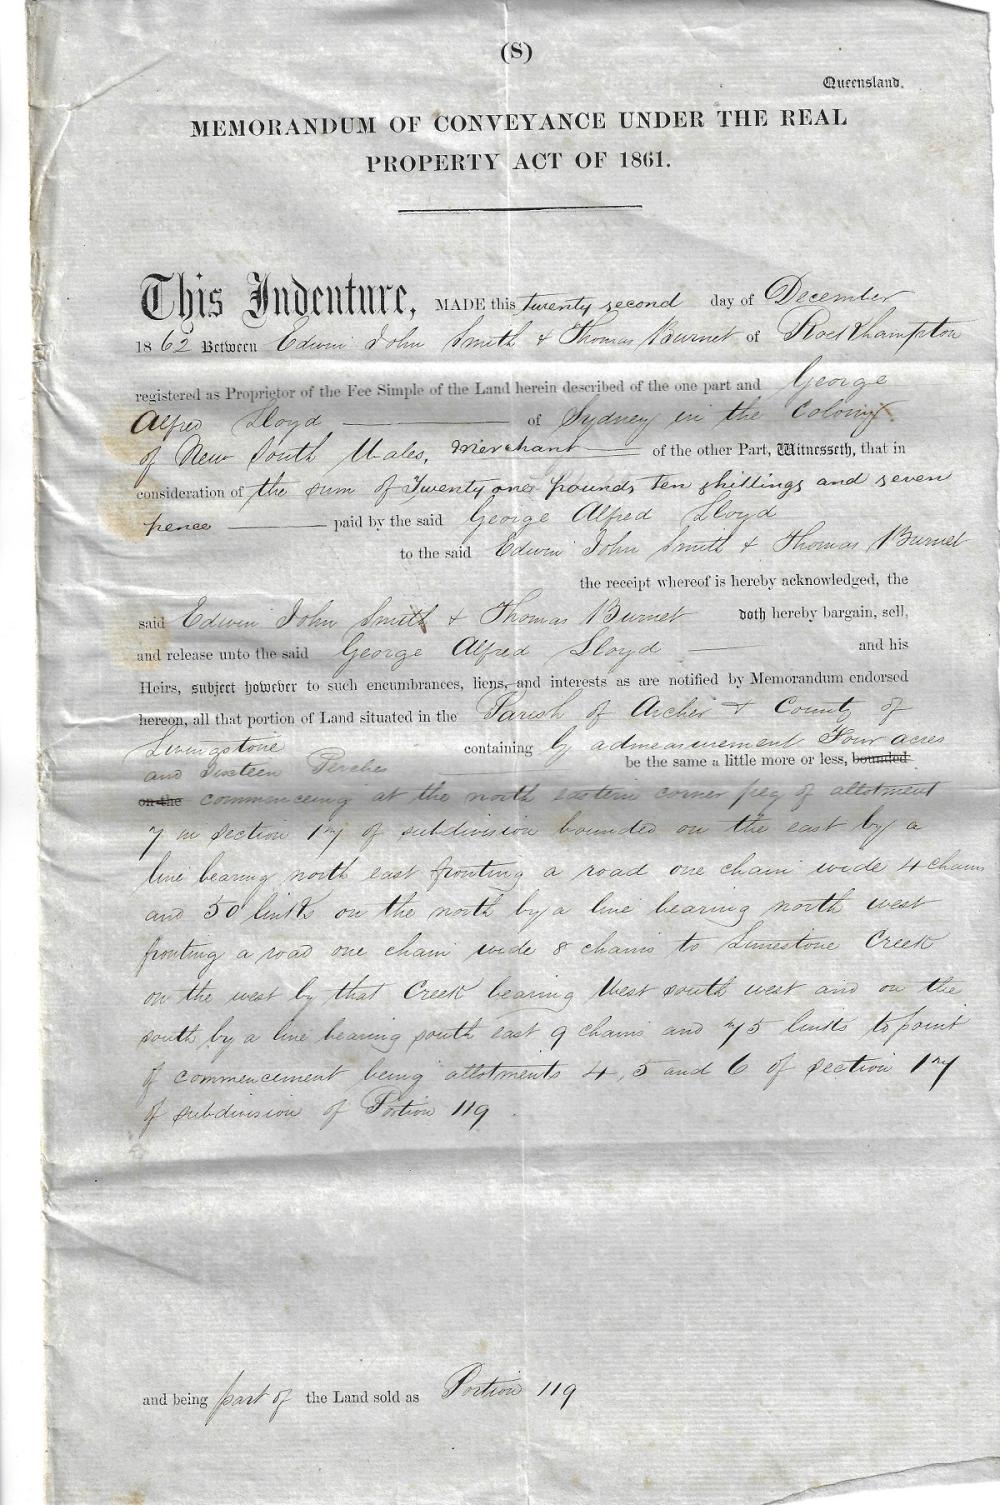 (S)
Queensland.
MEMORANDUM OF CONVEYANCE UNDER THE REAL
PROPERTY ACT OF 1861.
This Indenture, MADE this twenty second day of December
1862 Between Edwin John Smith & Thomas Burnet of Rockhampton
registered as Proprietor of the Fee Simple of the Land herein described of the one part and George
Alfred Lloyd of Sydney in the Colony
of New South Wales, Merchant of the other Part, Witnesseth, that in
consideration of the sum of Twenty one pounds ten shillings and seven
pence paid by the said George Alfred Lloyd
to the said Edwin John Smith & Thomas Burnet
the receipt whereof is hereby acknowledged, the
said Edwin John Smith & Thomas Burnet doth hereby bargain, sell,
and release unto the said George Alfred Lloyd and his
Heirs, subject however to such encumbrances, liens, and interests as are notified by Memorandum endorsed
hereon, all that portion of Land situated in the Parish of Archer & County of
Livingstone containing by admeasurement Four acres
and Sixteen Perches be the same a little more or less, bounded
on the commencing at the north eastern corner peg of allotment
7 in section 17 of subdivision bounded on the east by a
line bearing north east fronting a road one chain wide 4 chains
and 50 links on the north by a line bearing north west
fronting a road one chain wide 8 chains to Limestone Creek
on the west by that Creek bearing West south west and on the
south by a line bearing south east 9 chains and 75 links to point
of commencement being allotments 4, 5 and 6 of section 17
of subdivision of Portion 119.
and being part of the Land sold as Portion 119